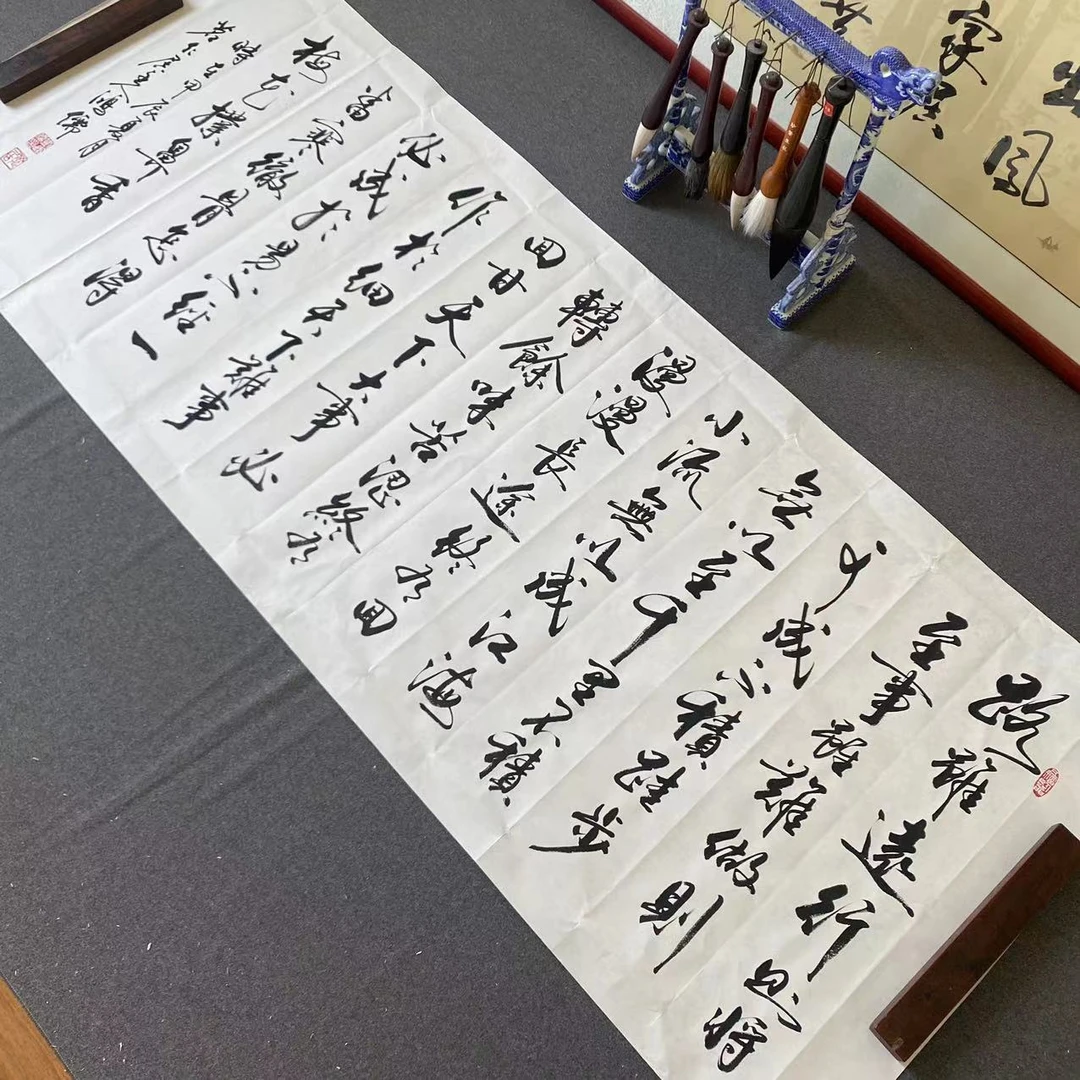 路雖遠行則將
至事雖難做則
必成不積跬步
無以至千里不積
小流無以成江海
漫漫長途終有回
轉餘味苦澀終有
回甘天下大事必
作於細天下難事
必成於易不經一
番寒徹骨怎得
梅花撲鼻香
時在甲辰夏月
居主人鴻
出鳳
家